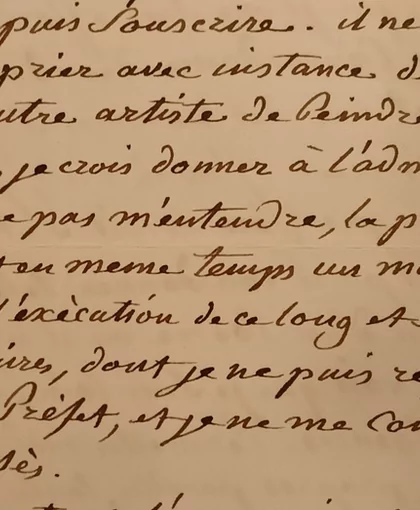 puis Souscrire. il ne
prier avec instance d
utre artiste de Peindre
, je crois donner à l'adm
e pas m'entendre, la p
en meme temps un m
l'exècutión de ce long et
ires, dont je ne puis re
Prèfet, et je ne me con
sès.